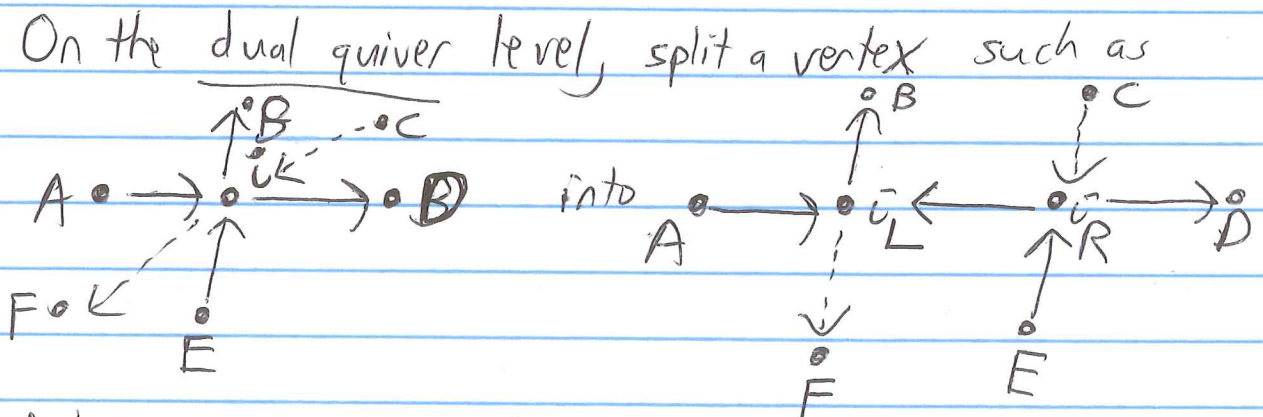 On the dual quiver level, split a vertex such as
B C B C
A i D into A i L i R D
F E F E